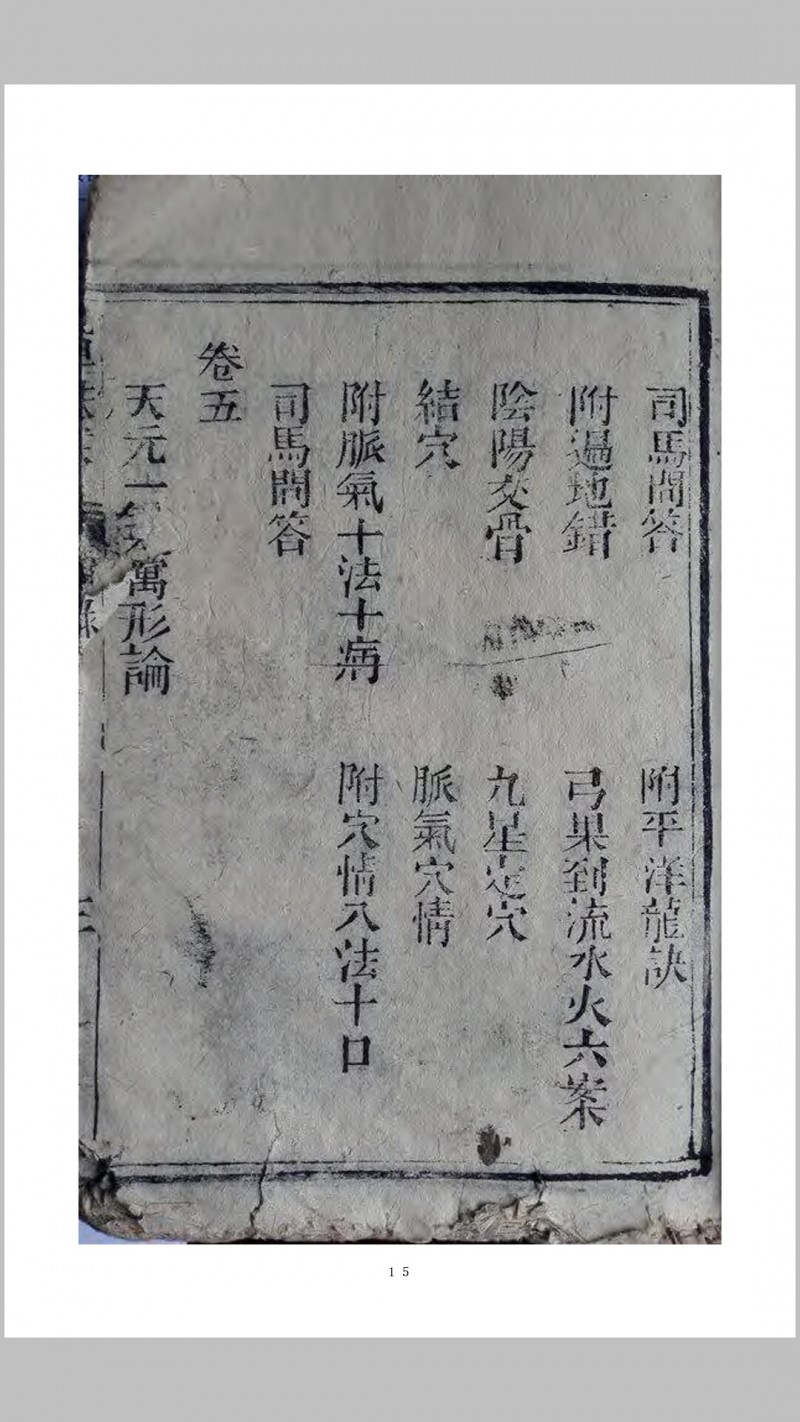 司馬問答
附平洋龍訣
附過地錯
弓果到流水火六案
陰陽交骨
九星定穴
結穴
脈氣穴情
附脈氣十法十病
附穴情八法十口
司馬問答
卷五
天元一氣寓形論
三
15